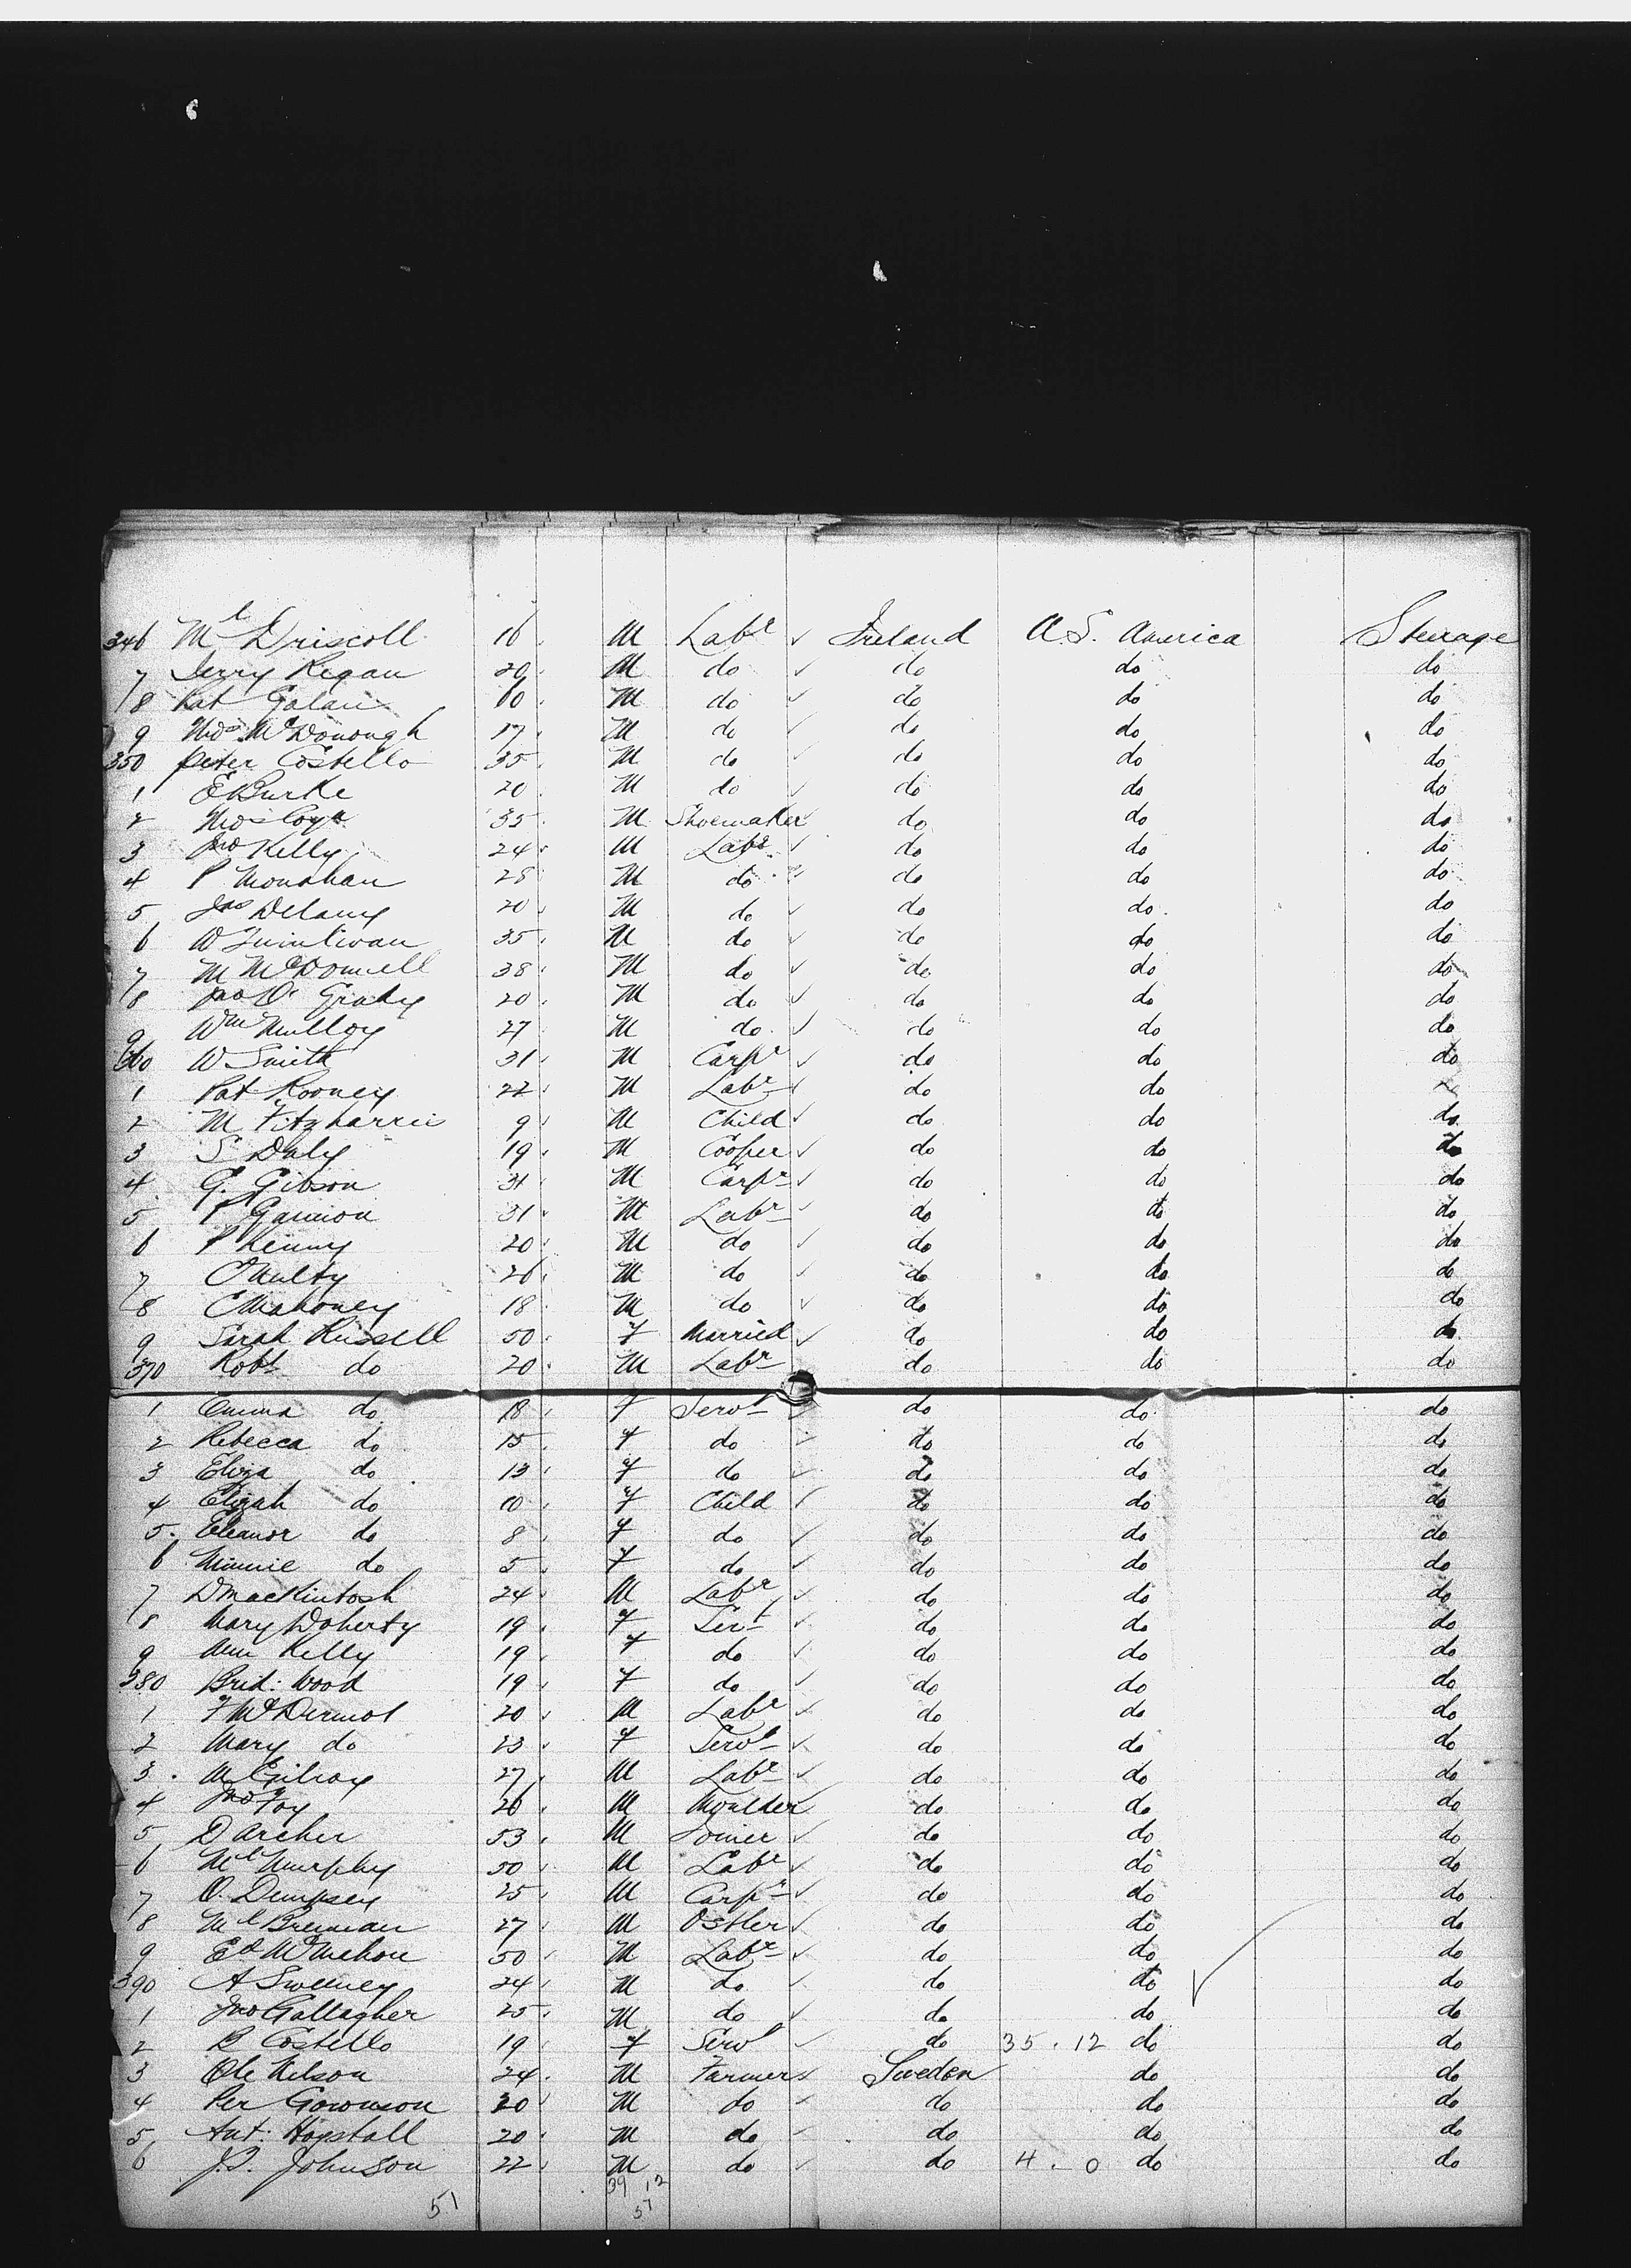 346 Ml Driscoll 16 M Labr Ireland U.S. America Steerage
7 Jerry Regan 20 M do do do do
8 Pat 60 M do do do do
9 Thos McDonough 17 M do do do do
350 Peter Costello 35 M do do do do
1 E Burke 20 M do do do do
2 Thos 35 M Shoemaker do do do
3 Jno Kelly 24 M Labr do do do
4 P Monahan 28 M do do do do
5 Jas Delany 20 M do do do do
6 W Quinlivan 35 M do do do do
7 M McDonnell 38 M do do do do
8 Jno O' Grady 20 M do do do do
9 Wm Mulloy 27 M do do do do
360 W Smith 31 M Carpr do do do
1 Pat Rooney 22 M Labr do do
2 M Fitzharris 9 M Child do do do
3 S Daly 19 M Cooper do do do
4 G. Gibson 31 M Carpr do do do
5 P Gannon 31 M Labr do do do
6 P Kenny 20 M do do do do
7 26 M do do do do
8 C Mahoney 18 M do do do do
9 Sarah Russell 50 F Married do do do
370 Robt do 20 M Labr do do do
1 Emma do 18 F Servt do do do
2 Rebecca do 15 F do do do do
3 Eliza do 13 F do do do do
4 Elizah do 10 F Child do do do
5 Eleanor do 8 F do do do do
6 Minnie do 5 F do do do do
7 D MacKintosh 24 M Labr do do do
8 Mary Doherty 19 F Sert do do do
9 Ann Kelly 19 F do do do do
380 Brid: Wood 19 F do do do do
1 F McDermot 20 M Labr do do do
2 Mary do 23 F Servt do do do
3 M Gilroy 27 M Labr do do do
4 Jno Foy 26 M Moulder do do do
5 D Archer 53 M Joiner do do do
6 Ml Murphy 50 M Labr do do do
7 O. Dempsey 25 M Carpr do do do
8 Ml Brennan 27 M Ostler do do do
9 Ed McMahon 50 M Labr do do do
390 A Sweeney 24 M do do do do
1 Jno Gallagher 25 M do do do do
2 B Costello 19 F Servt do 35.12 do do
3 Ole Nelson 24 M Farmer Sweden do do
4 Per 20 M do do do do
5 Ant: Hogstall 20 M do do do do
6 J.P. Johnson 22 M do do 4.0 do do
39 12
51 51